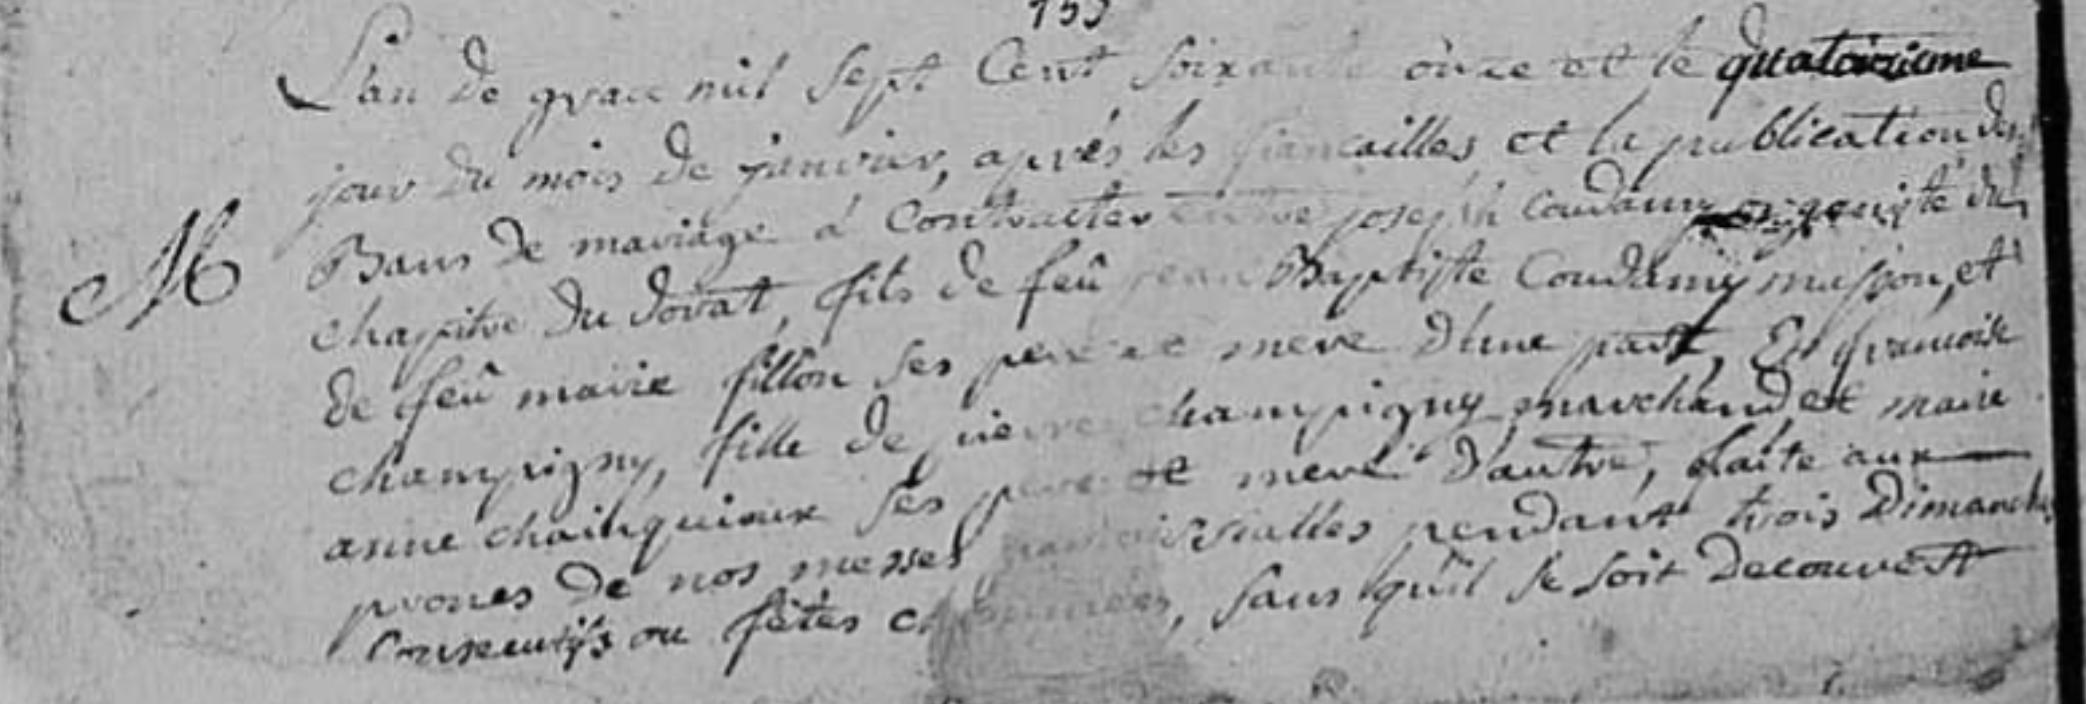 L'an de grace mil sept Cent soixante onze et le quatorzieme
jour du mois de janvier, aprés les fiancailles et la publication des
Bans de mariage a Contracter entre joseph Coudamy organiste du
chapitre du dorat, fils de feû jean Baptiste Coudamy musson, et
de feû marie fillon ses pere et mere d'une part, Et francoise
champigny, fille de pierre champigny marchand et marie
M
anne chainquieux ses pere et mere d'autre, faite aux
prones de nos messes paroissialles pendant trois Dimanches
Consecutifs ou fêtes chommées, sans qu'il se soit decouvert